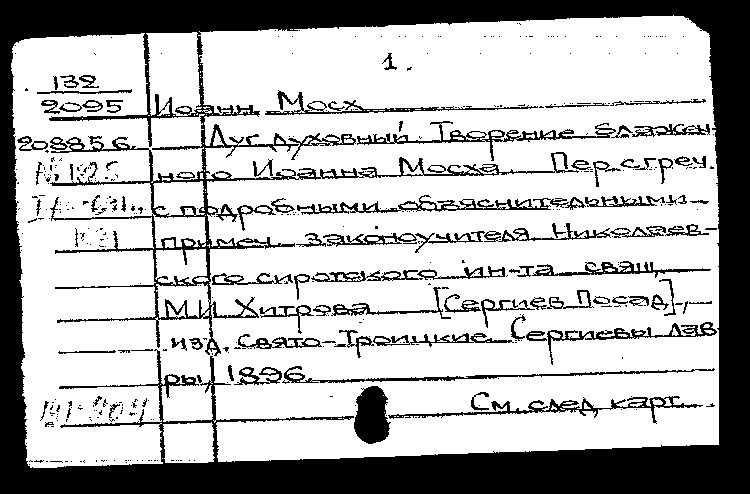 1.
132
2095 Иоанн Мосх
208856. Луг духовный. Творение блажен-
ного Иоанна Мосха. Пер. с греч.
с подробными объяснительными
примеч. законоучителя Николаев-
ского сиротского ин-та свящ.
М.И. Хитрова. [Сергиев Посад],
изд. Свято-Троицкие Сергиевы лав
ры, 1896.
См. след. карт.